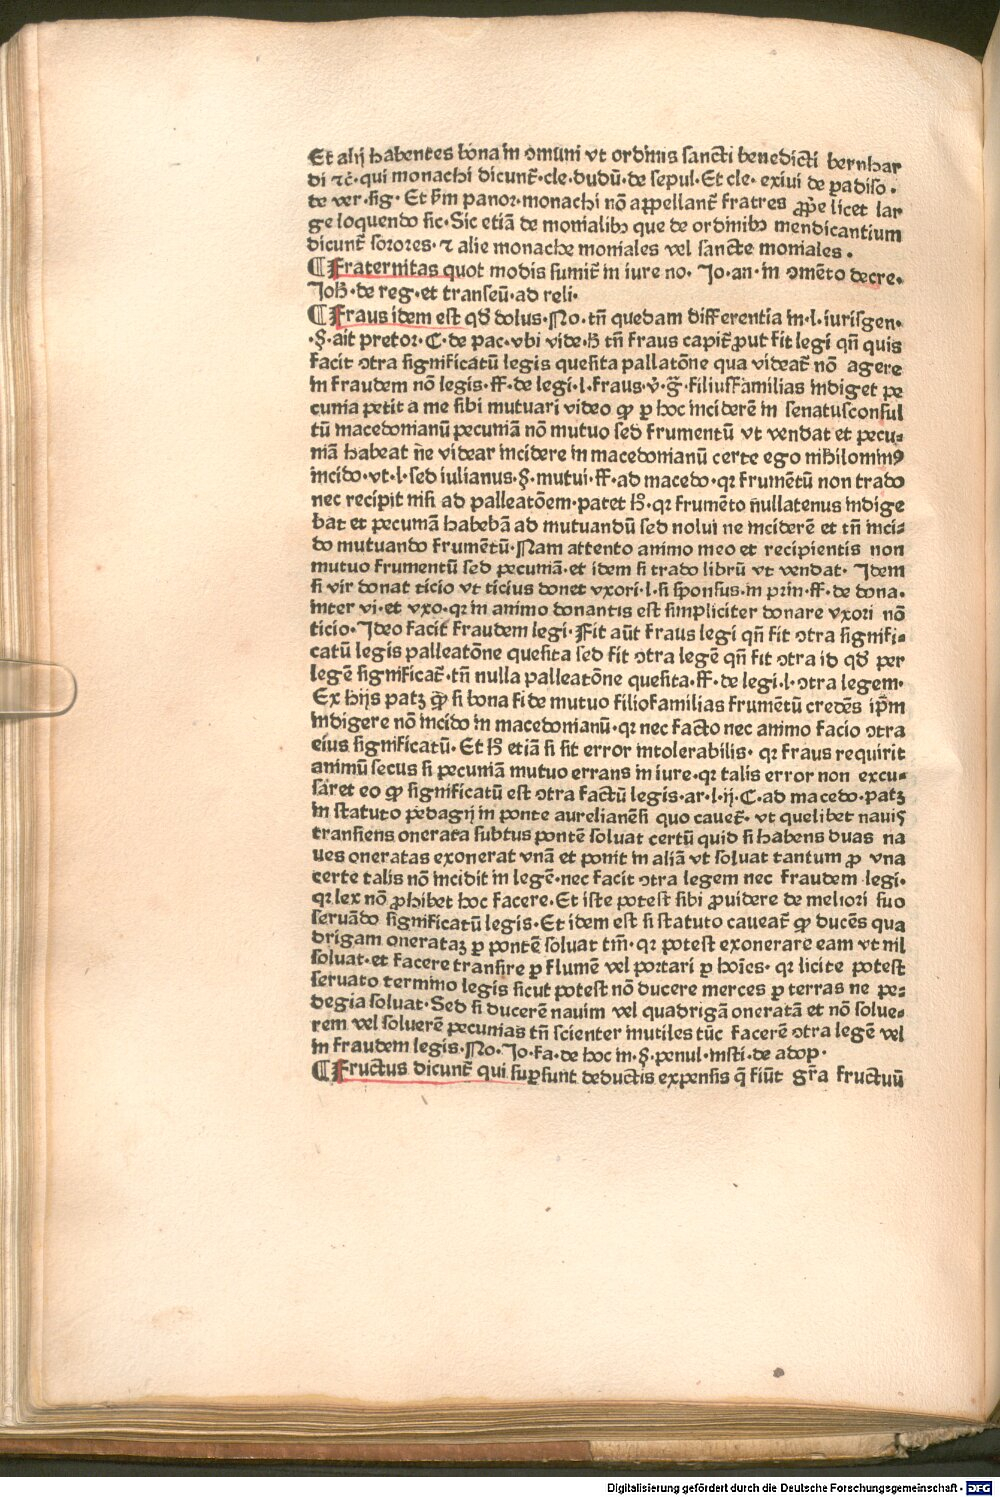 Et alij habentes bona in ↄmuni vt ordinis sancti benedicti bernhar
di ⁊c̄·qui monachi dicunt᷑·cle·dudū·de sepul·Et cle·exivi de ꝑadiso·
de ver·sig·Et ẜm panor·monachi nō appellant᷑ fratres ꝓp̄e licet lar
ge loquendo sic·Sic etiā de monialibꝫ que de ordinibꝫ mendicantium
dicunt᷑ sorores·⁊ alie monache moniales vel sancte moniales·
¶Fraternitas quot modis sumit᷑ in iure no·Jo·an·in ↄmēto decre·
Joh̄·de reg·et transeū·ad reli·
¶Fraus idem est qd̄ dolus·No·tn̄ quedam differentia in·l·iurisgen·
·§·ait pretor·C·de pac·vbi vide·h̄ tn̄ fraus capit᷑ ꝓut fit legi qn̄ quis
facit ↄtra significatū legis quesita pallatōne qua videat᷑ nō agere
in fraudem nō legis·ff·de legi·l·fraus·v̄·ḡ·filiusfamilias indiget pe
cunia petit a me sibi mutuari video ꝙ ꝑ hoc inciderē in senatusconsul
tū macedonianū pecuniā nō mutuo sed frumentū vt vendat et pecu-
niā habeat n̄e videar incidere in macedonianū certe ego nihilominꝰ
incido·vt·l·sed iulianus·§·mutui·ff·ad macedo·qꝛ frumētū non trado
nec recipit nisi ad palleatōem·patet h̄·qꝛ frumēto n̄ullatenus indige
bat et pecuniā habebā ad mutuandū sed nolui ne inciderē et tn̄ inci-
do mutuando frumētū·Nam attento animo meo et recipientis non
mutuo frumentū sed pecuniā·et idem si trado librū vt vendat· Idem
si vir donat ticio vt ticius donet vxori·l·si sponsus·in prin·ff·de dona·
inter vi·et vxo·qꝛ in animo donantis est simpliciter donare vxori nō
ticio·Ideo facit fraudem legi·Fit aūt fraus legi qn̄ fit ↄtra signifi-
catū legis palleatōne quesita sed fit ↄtra legē qn̄ fit ↄtra id qd̄ per
legē significat᷑·tn̄ nulla palleatōne quesita·ff·de legi·l·ↄtra legem·
Ex hijs patꝫ ꝙ si bona fide mutuo filiofamilias frumētū credēs ip̄m
indigere nō incido in macedonianū·qꝛ nec facto nec animo facio ↄtra
eius significatū·Et h̄ etiā si sit error intolerabilis· qꝛ fraus requirit
animū secus si pecuniā mutuo errans in iure·qꝛ talis error non excu-
saret eo ꝙ significatū est ↄtra factū legis·ar·l·ij·C·ad macedo·patꝫ
in statuto pedagij in ponte aurelianēsi quo cauet᷑· vt quelibet nauis
transiens onerata subtus pontē soluat certū quid si habens duas na
ues oneratas exonerat vnā et ponit in aliā vt soluat tantum ꝓ vna
certe talis nō incidit in legē·nec facit ↄtra legem nec fraudem legi·
qꝛ lex nō ꝓhibet hoc facere·Et iste potest sibi ꝓuidere de meliori suo
seruādo significatū legis·Et idem est si statuto caueat᷑ ꝙ ducēs qua
drigam onerataꝫ ꝑ pontē soluat tm̄·qꝛ potest exonerare eam vt nil
soluat·et facere transire ꝑ flumē vel portari ꝑ hoīes·qꝛ licite potest
seruato termino legis sicut potest nō ducere merces ꝑ terras ne pe-
degia soluat·Sed si ducerē nauim vel quadrigā oneratā et nō solue-
rem vel soluerē pecunias tn̄ scienter inutiles tūc facerē ↄtra legē vel
in fraudem legis·No·Jo·fa·de hoc in·§·penul·insti·de adop·
¶Fructus dicunt᷑ qui suꝑsunt deductis expensis q̄ fiūt gr̄a fructuū
Digitalisierung gefördert durch die Deutsche Forschungsgemeinschaft - DFG